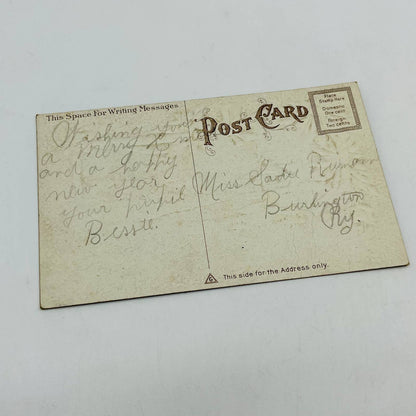 This Space For Writing Messages
Wishing you
a Merry
and a happy
new year
your pupil
Bessie
POST CARD
Place
Stamp Here
Domestic
One cent
Foreign
Two cents
Miss Sadie
Burlington
Ky.
This side for the Address only.